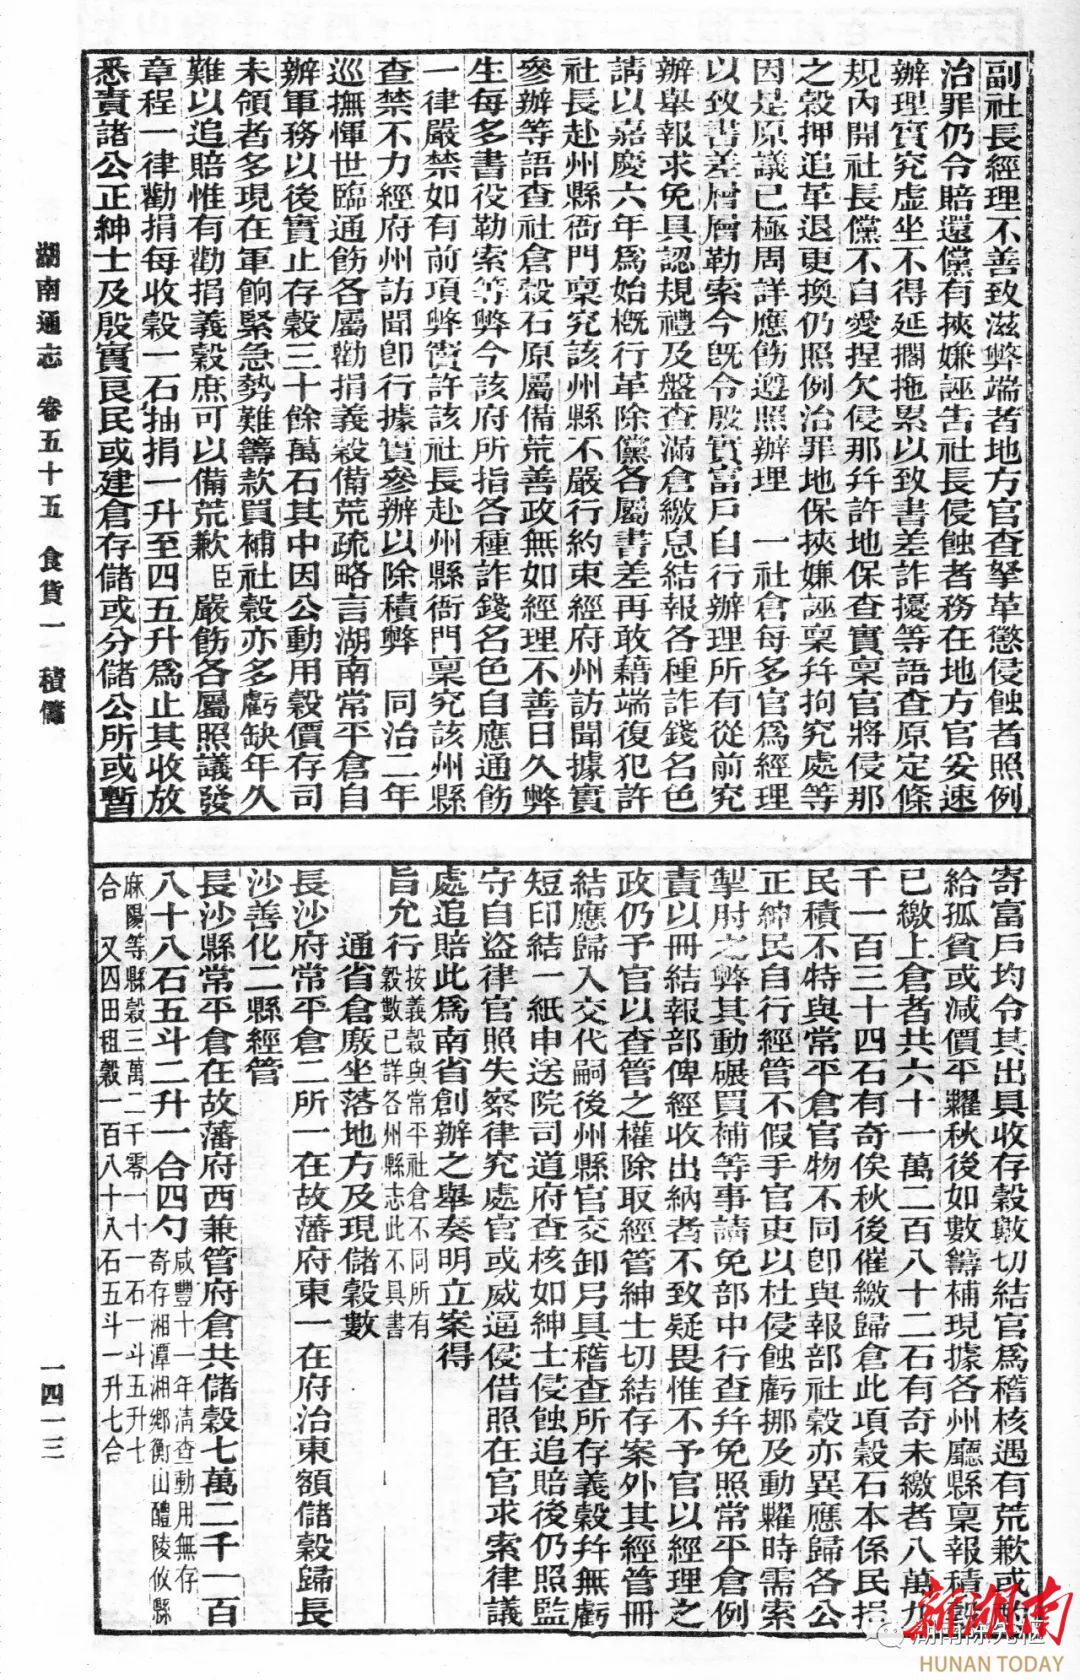 副社長經理不善致滋弊端者地方官查拏革懲侵蝕者照例
治罪仍令賠還儻有挾嫌誣告社長侵蝕者務在地方官妥速
辦理實究虛坐不得延擱拖累以致書差詐擾等語查原定條
規內開社長儻不自愛捏欠侵那幷許地保查實稟官將侵那
之穀押追革退更換仍照例治罪地保挾嫌誣稟幷拘究處等
因是原議已極周詳應飭遵照辦理 一社倉每多官爲經理
以致書差層層勒索今旣令殷實富戶自行辦理所有從前究
辦舉報求免具認規禮及盤查滿倉繳息結報各種詐錢名色
請以嘉慶六年爲始槪行革除儻各屬書差再敢藉端復犯許
社長赴州縣衙門稟究該州縣不嚴行約束經府州訪聞據實
參辦等語查社倉穀石原屬備荒善政無如經理不善日久弊
生每多書役勒索等弊今該府所指各種詐錢名色自應通飭
一律嚴禁如有前項弊竇許該社長赴州縣衙門稟究該州縣
查禁不力經府州訪聞卽行據實參辦以除積弊 同治二年
巡撫惲世臨通飭各屬勸捐義穀備荒疏略言湖南常平倉自
辦軍務以後實止存穀三十餘萬石其中因公動用穀價存司
未領者多現在軍餉緊急勢難籌款買補社穀亦多虧缺年久
難以追賠惟有勸捐義穀庶可以備荒歉臣嚴飭各屬照議發
章程一律勸捐每收穀一石抽捐一升至四五升爲止其收放
悉責諸公正紳士及殷實良民或建倉存儲或分儲公所或暫
寄富戶均令其出具收存穀數切結官爲稽核遇有荒歉或
給孤貧或減價平糶秋後如數籌補現據各州廳縣稟報積
已繳上倉者共六十一萬二百八十二石有奇未繳者八萬九
千一百三十四石有奇俟秋後催繳歸倉此項穀石本係民捐
民積不特與常平倉官物不同卽與報部社穀亦異應歸各公
正紳民自行經管不假手官吏以杜侵蝕虧挪及動糶時需索
掣肘之弊其動碾買補等事請免部中行查幷免照常平倉例
責以冊結報部俾經收出納者不致疑畏惟不予官以經理之
政仍予官以查管之權除取經管紳士切結存案外其經管冊
結應歸入交代嗣後州縣官交卸另具稽查所存義穀幷無虧
短印結一紙申送院司道府查核如紳士侵蝕追賠後仍照監
守自盜律官照失察律究處官或威逼侵借照在官求索律議
處追賠此爲南省創辦之舉奏明立案得
旨允行按義穀與常平社倉不同所有穀數已詳各州縣志此不具書
通省倉廒坐落地方及現儲穀數
長沙府常平倉二所一在故藩府東一在府治東額儲穀歸長
沙善化二縣經管
長沙縣常平倉在故藩府西兼管府倉共儲穀七萬二千一百
八十八石五斗二升一合四勺咸豐十一年清查動用無存寄存湘潭湘鄉衡山醴陵攸縣
麻陽等縣穀三萬二千零一十一石一斗五升七
合 又囚田租穀一百八十八石五斗一升七合
湖南通志 卷五十五 食貨一 積儲
一四一三
新湖南
HUNAN TODAY